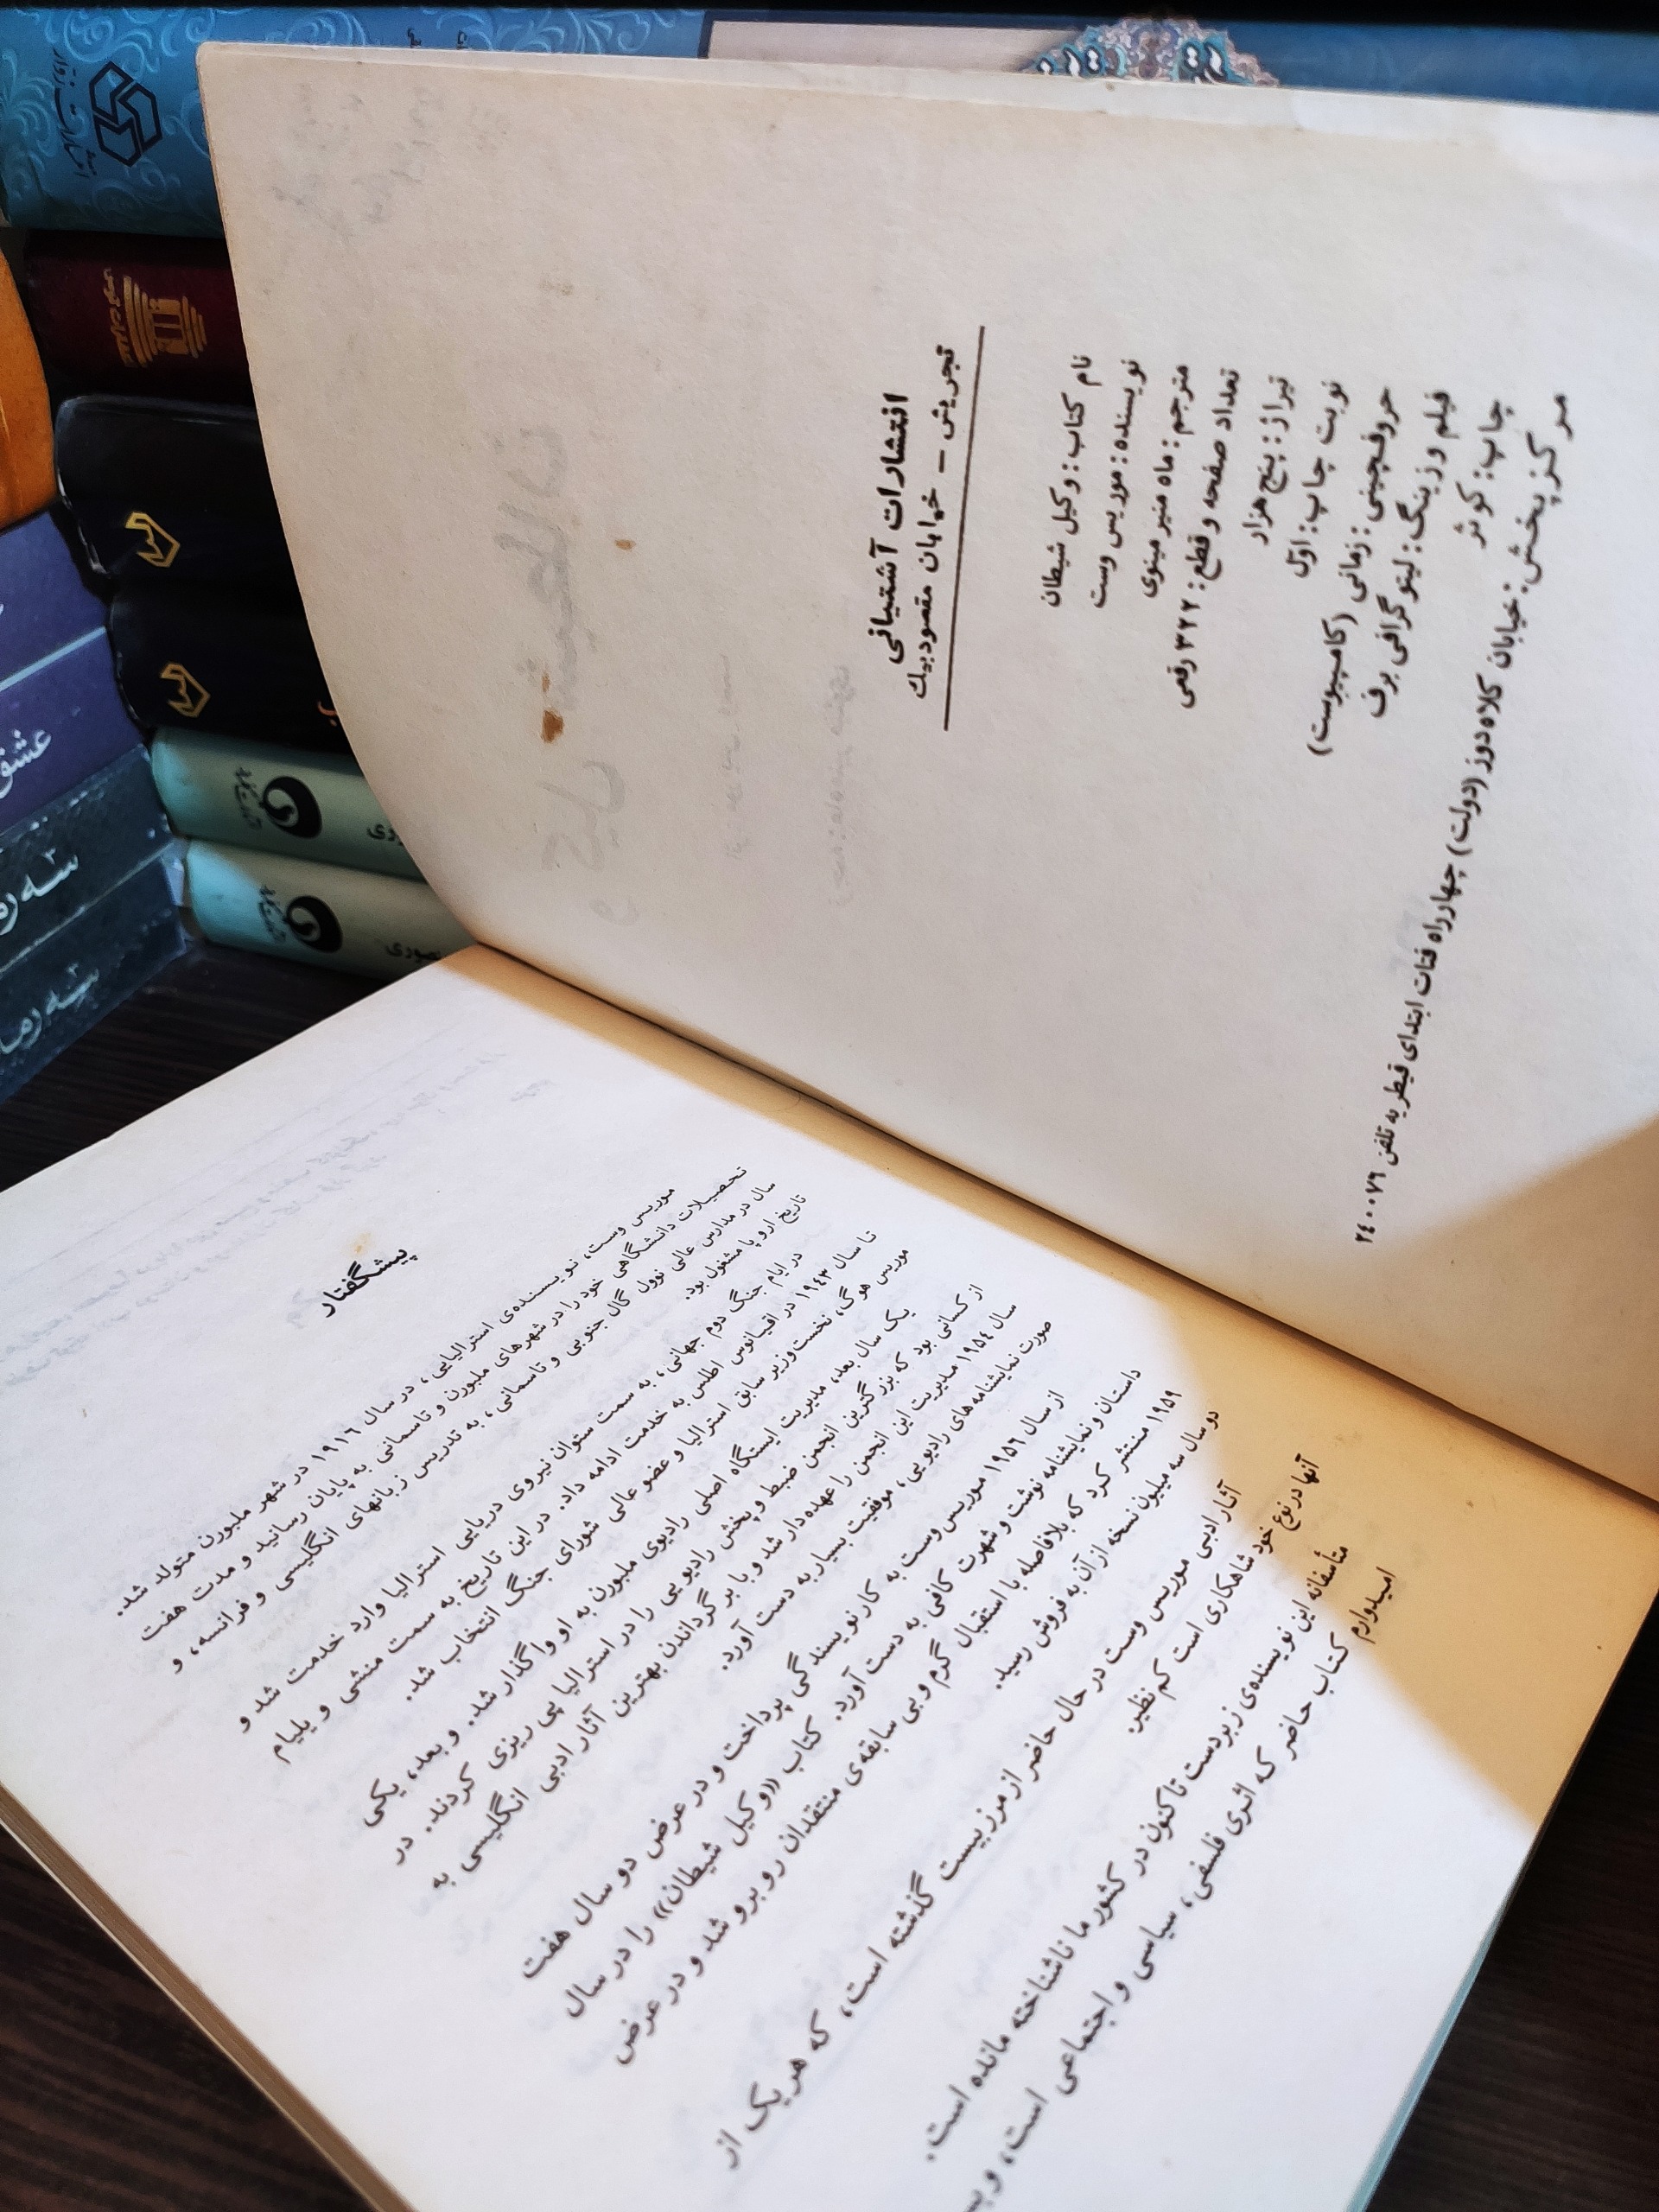 انتشارات آشتیانی
تجریش - خیابان مقصودبیك
نام کتاب: وکیل شیطان
نویسنده: موریس وست
مترجم: ماه منیر مینوی
تعداد صفحه و قطع: ۳۲۲ رقعی
تیراژ: پنج هزار
نوبت چاپ: اوّل
حروفچینی: زمانی (کامپیوست)
فیلم و زینگ: لیتوگرافی برف
چاپ: کوثر
مرکز پخش: خیابان کلاه‌دوز (دولت) چهارراه قنات ابتدای قیطریه تلفن ۲٤۰۰۷۹
پیشگفتار
موریس وست، نویسنده‌ی استرالیایی، در سال ۱۹۱٦ در شهر ملبورن متولد شد.
تحصیلات دانشگاهی خود را در شهرهای ملبورن و تاسمانی به پایان رسانید و مدت هفت
سال در مدارس عالی نوول گال جنوبی و تاسمانی، به تدریس زبانهای انگلیسی و فرانسه، و
تاریخ اروپا مشغول بود.
در ایام جنگ دوم جهانی، به سمت ستوان نیروی دریایی استرالیا وارد خدمت شد و
تا سال ۱۹٤۳ در اقیانوس اطلس به خدمت ادامه داد. در این تاریخ به سمت منشی ویلیام
موریس هوگ، نخست‌وزیر سابق استرالیا و عضو عالی شورای جنگ انتخاب شد.
یک سال بعد، مدیریت ایستگاه اصلی رادیوی ملبورن به او واگذار شد. و بعد، یکی
از کسانی بود که بزرگترین انجمن ضبط و پخش رادیویی را در استرالیا پی ریزی کردند. در
سال ۱۹۵٤ مدیریت این انجمن را عهده‌دار شد و با برگرداندن بهترین آثار ادبی انگلیسی به
صورت نمایشنامه‌های رادیویی، موفقیت بسیار به دست آورد.
از سال ۱۹۵٦ موریس وست به کار نویسندگی پرداخت و در عرض دو سال هفت
داستان و نمایشنامه نوشت و شهرت کافی به دست آورد. کتاب «وکیل شیطان» را در سال
۱۹۵۹ منتشر کرد که بلافاصله با استقبال گرم و بی سابقه‌ی منتقدان روبرو شد و در عرض
دو سال سه میلیون نسخه از آن به فروش رسید.
آثار ادبی موریس وست در حال حاضر از مرز بیست گذشته است، که هر یک از
آنها در نوع خود شاهکاری است کم نظیر.
متأسفانه این نویسنده‌ی زبردست تاکنون در کشور ما ناشناخته مانده است.
امیدوارم کتاب حاضر که اثری فلسفی، سیاسی و اجتماعی است، و
انتشارات زوّار
عشق